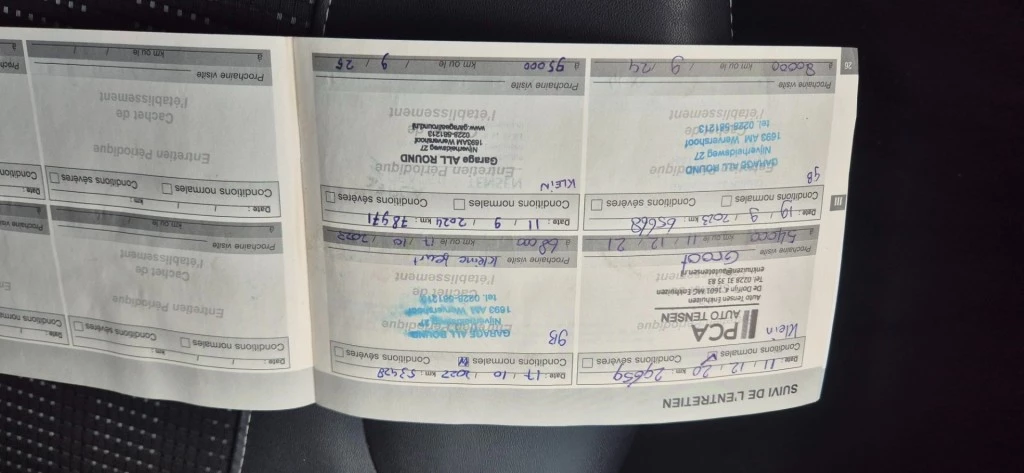 SUIVI DE L'ENTRETIEN
Date : 11 / 12 / 20 km : 29659
Conditions normales Conditions sévères
Klein
PCA
AUTO TENSEN
Auto Tensen Enkhuizen
De Dolfijn 4, 1601 MG Enkhuizen
Tel. 0228 31 35 83
enkhuizen@autotensen.nl
Groot
Prochaine visite
à 54000 km ou le 11 / 12 / 21
Date : 17 / 10 / 2022 km : 53428
Conditions normales Conditions sévères
GB
GARAGE ALL ROUND
Nijverheidsweg 27
1693 AM Wervershoof
tel. 0228-581213
Cachet de
l'établissement
Prochaine visite Kleine beurt
à 68000 km ou le 17 / 10 / 2023
Date : / / km :
Conditions normales Conditions sévères
Entretien Périodique
Cachet de
l'établissement
Prochaine visite
à km ou le / /
Date :
Conditions norma
Date : 19 / 9 / 2023 km : 65668
Conditions normales Conditions sévères
GB
GARAGE ALL ROUND
Nijverheidsweg 27
1693 AM Wervershoof
tel. 0228-581213
l'établissement
Prochaine visite
à 80000 km ou le / 9 / 24
Date : 11 / 9 / 2024 km : 78971
Conditions normales Conditions sévères
KLEIN
Entretien Périodique
Garage ALL ROUND
Nijverheidsweg 27
1693AM Wervershoof
0228-581213
www.garageallround.nl
l'établissement
Prochaine visite
à 95000 km ou le / 9 / 25
Date : / / km :
Conditions normales Conditions sévères
Entretien Périodique
Cachet de
l'établissement
Prochaine visite
à km ou le / /
Date :
Condition
Proch
à
III
26